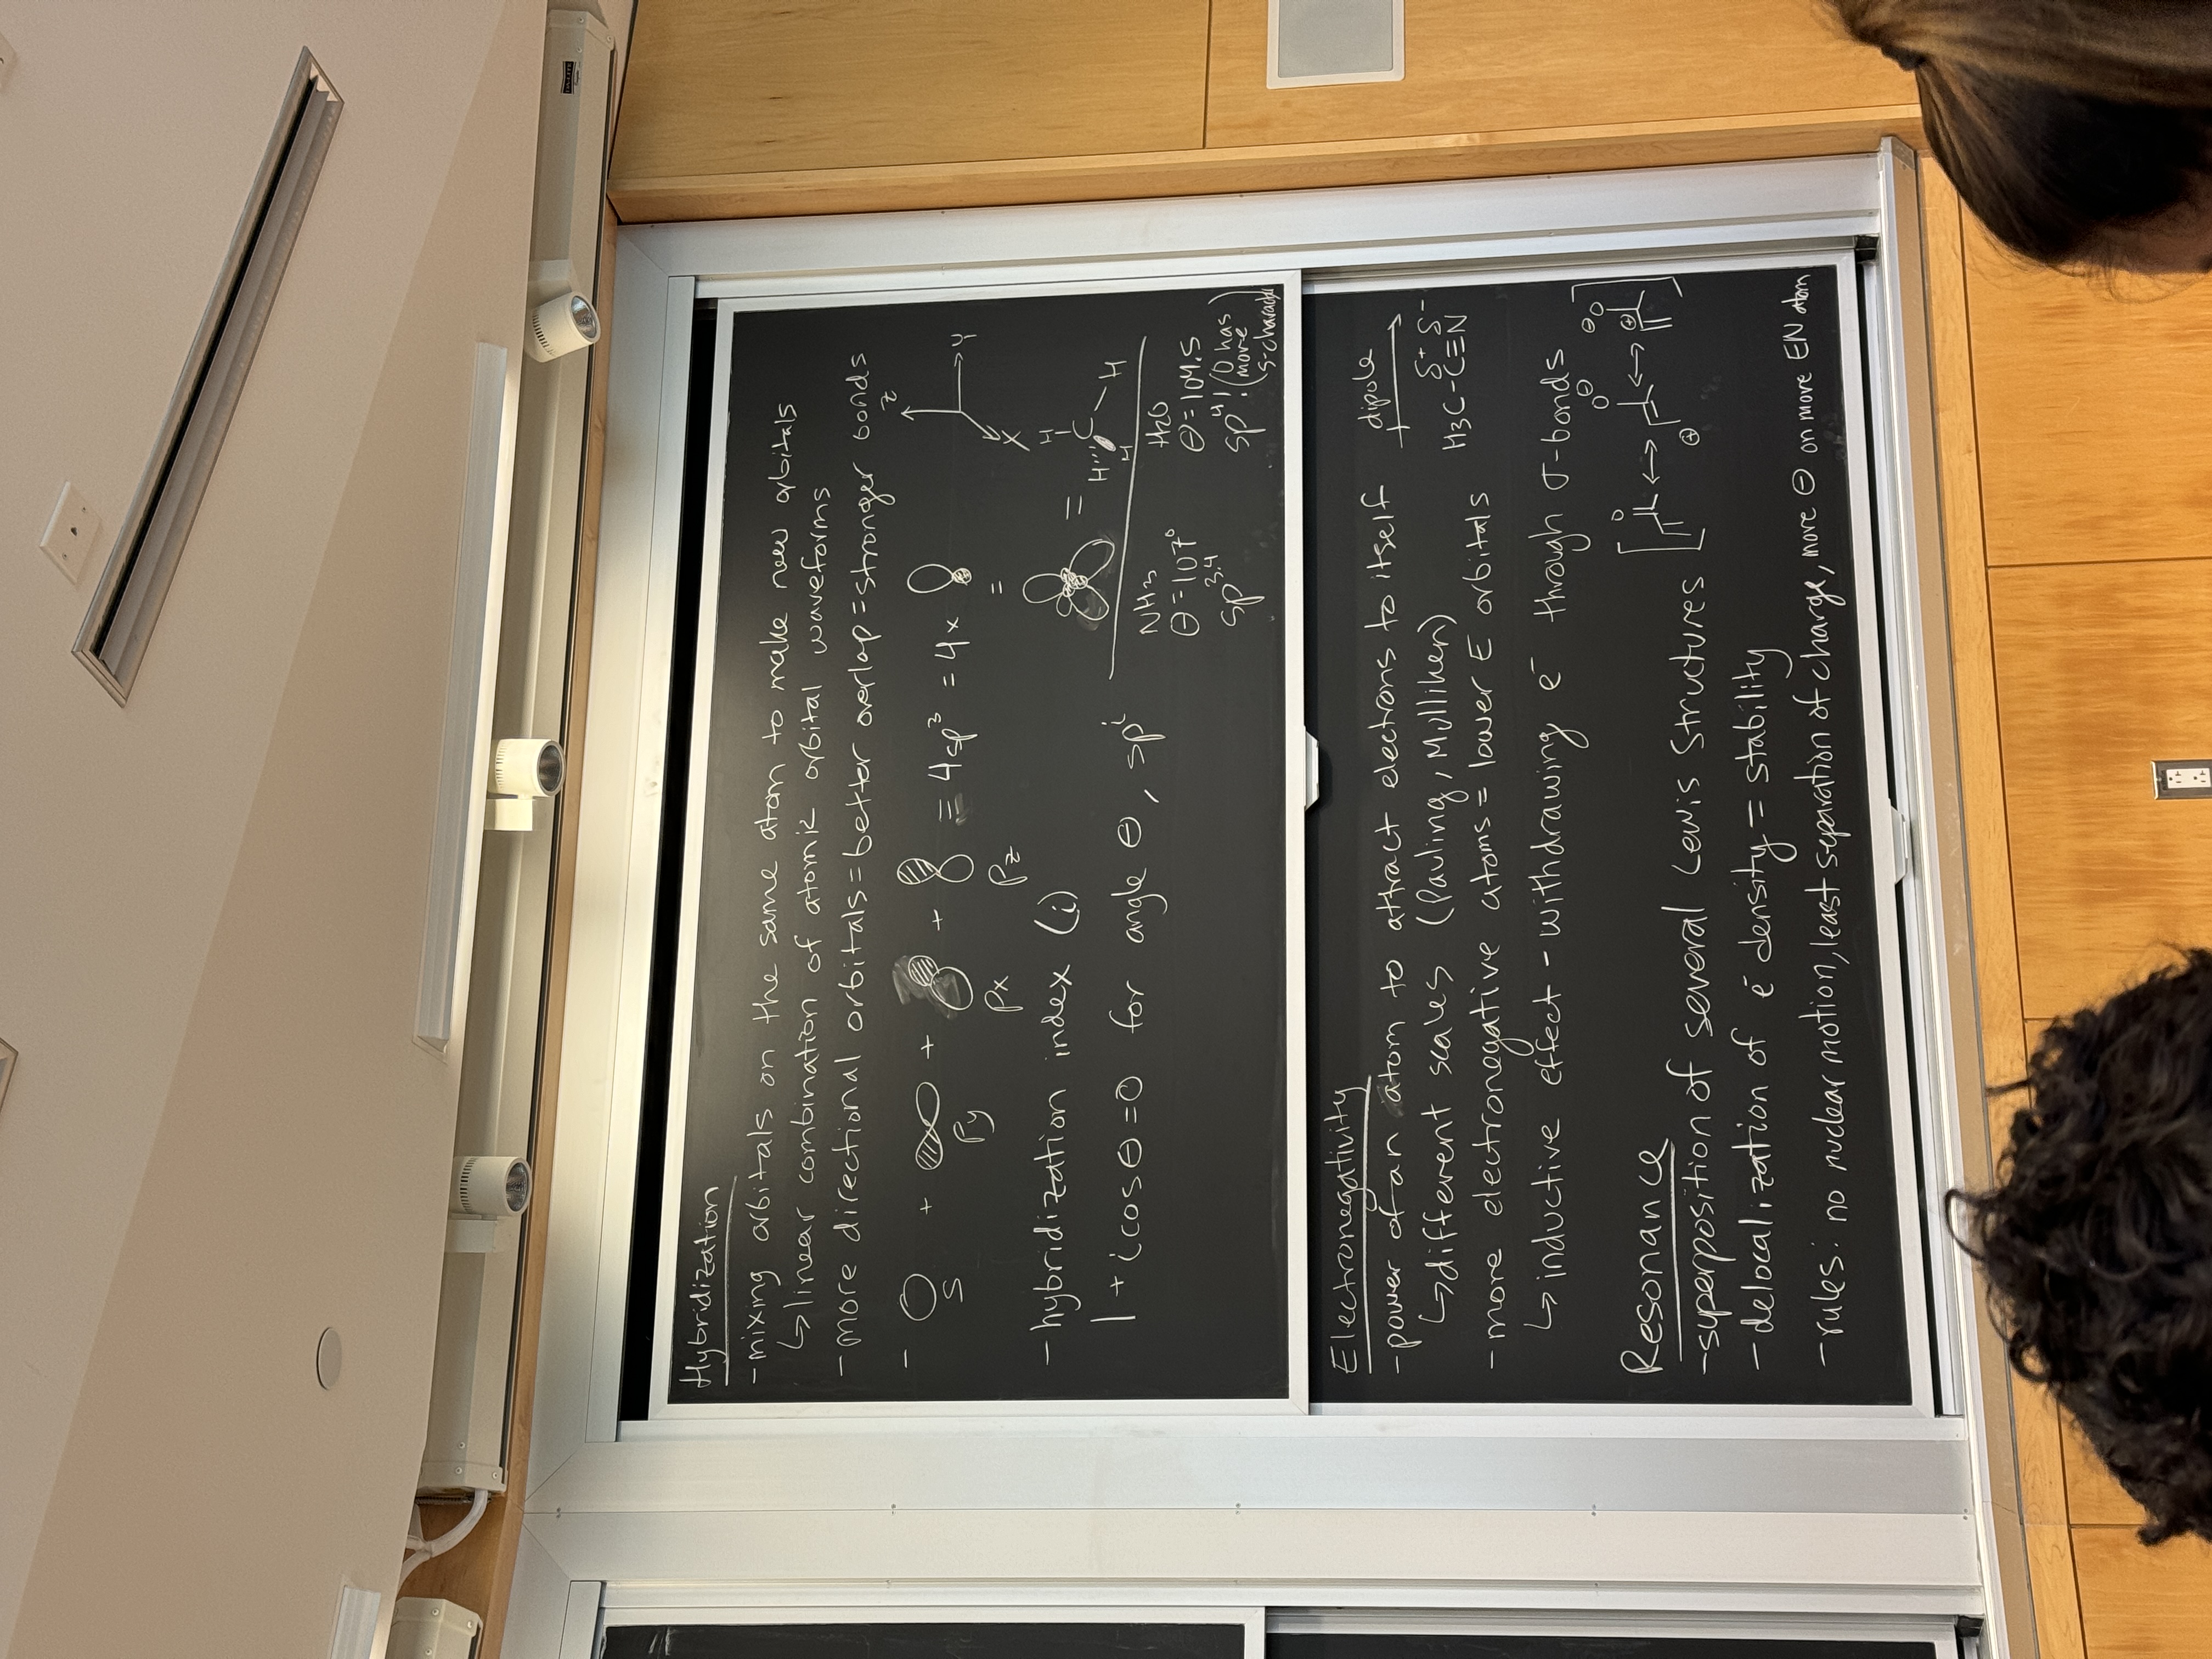 Hybridization
- mixing orbitals on the same atom to make new orbitals
↳ linear combination of atomic orbital waveforms
- more directional orbitals = better overlap = stronger bonds
- s + py + px + pz = 4sp³ = 4x
=
=
Z
Y
X
H
C
H
H
H
- hybridization index (i)
1 + i cos θ = 0 for angle θ, spⁱ
NH₃
θ = 107°
sp³·⁴
H₂O
θ = 104.5
sp⁴! (O has
more
s-charact
Electronegativity
- power of an atom to attract electrons to itself
↳ different scales (Pauling, Mulliken)
- more electronegative atoms = lower E orbitals
↳ inductive effect - withdrawing e⁻ through σ-bonds
dipole
δ⁺ δ⁻
H₃C-C≡N
Resonance
- superposition of several Lewis Structures
[ O ↔ O ⊖ ⊕ ↔ ⊖ O ⊕ ]
- delocalization of e⁻ density = stability
- rules: no nuclear motion, least separation of charge, more ⊖ on more EN atom